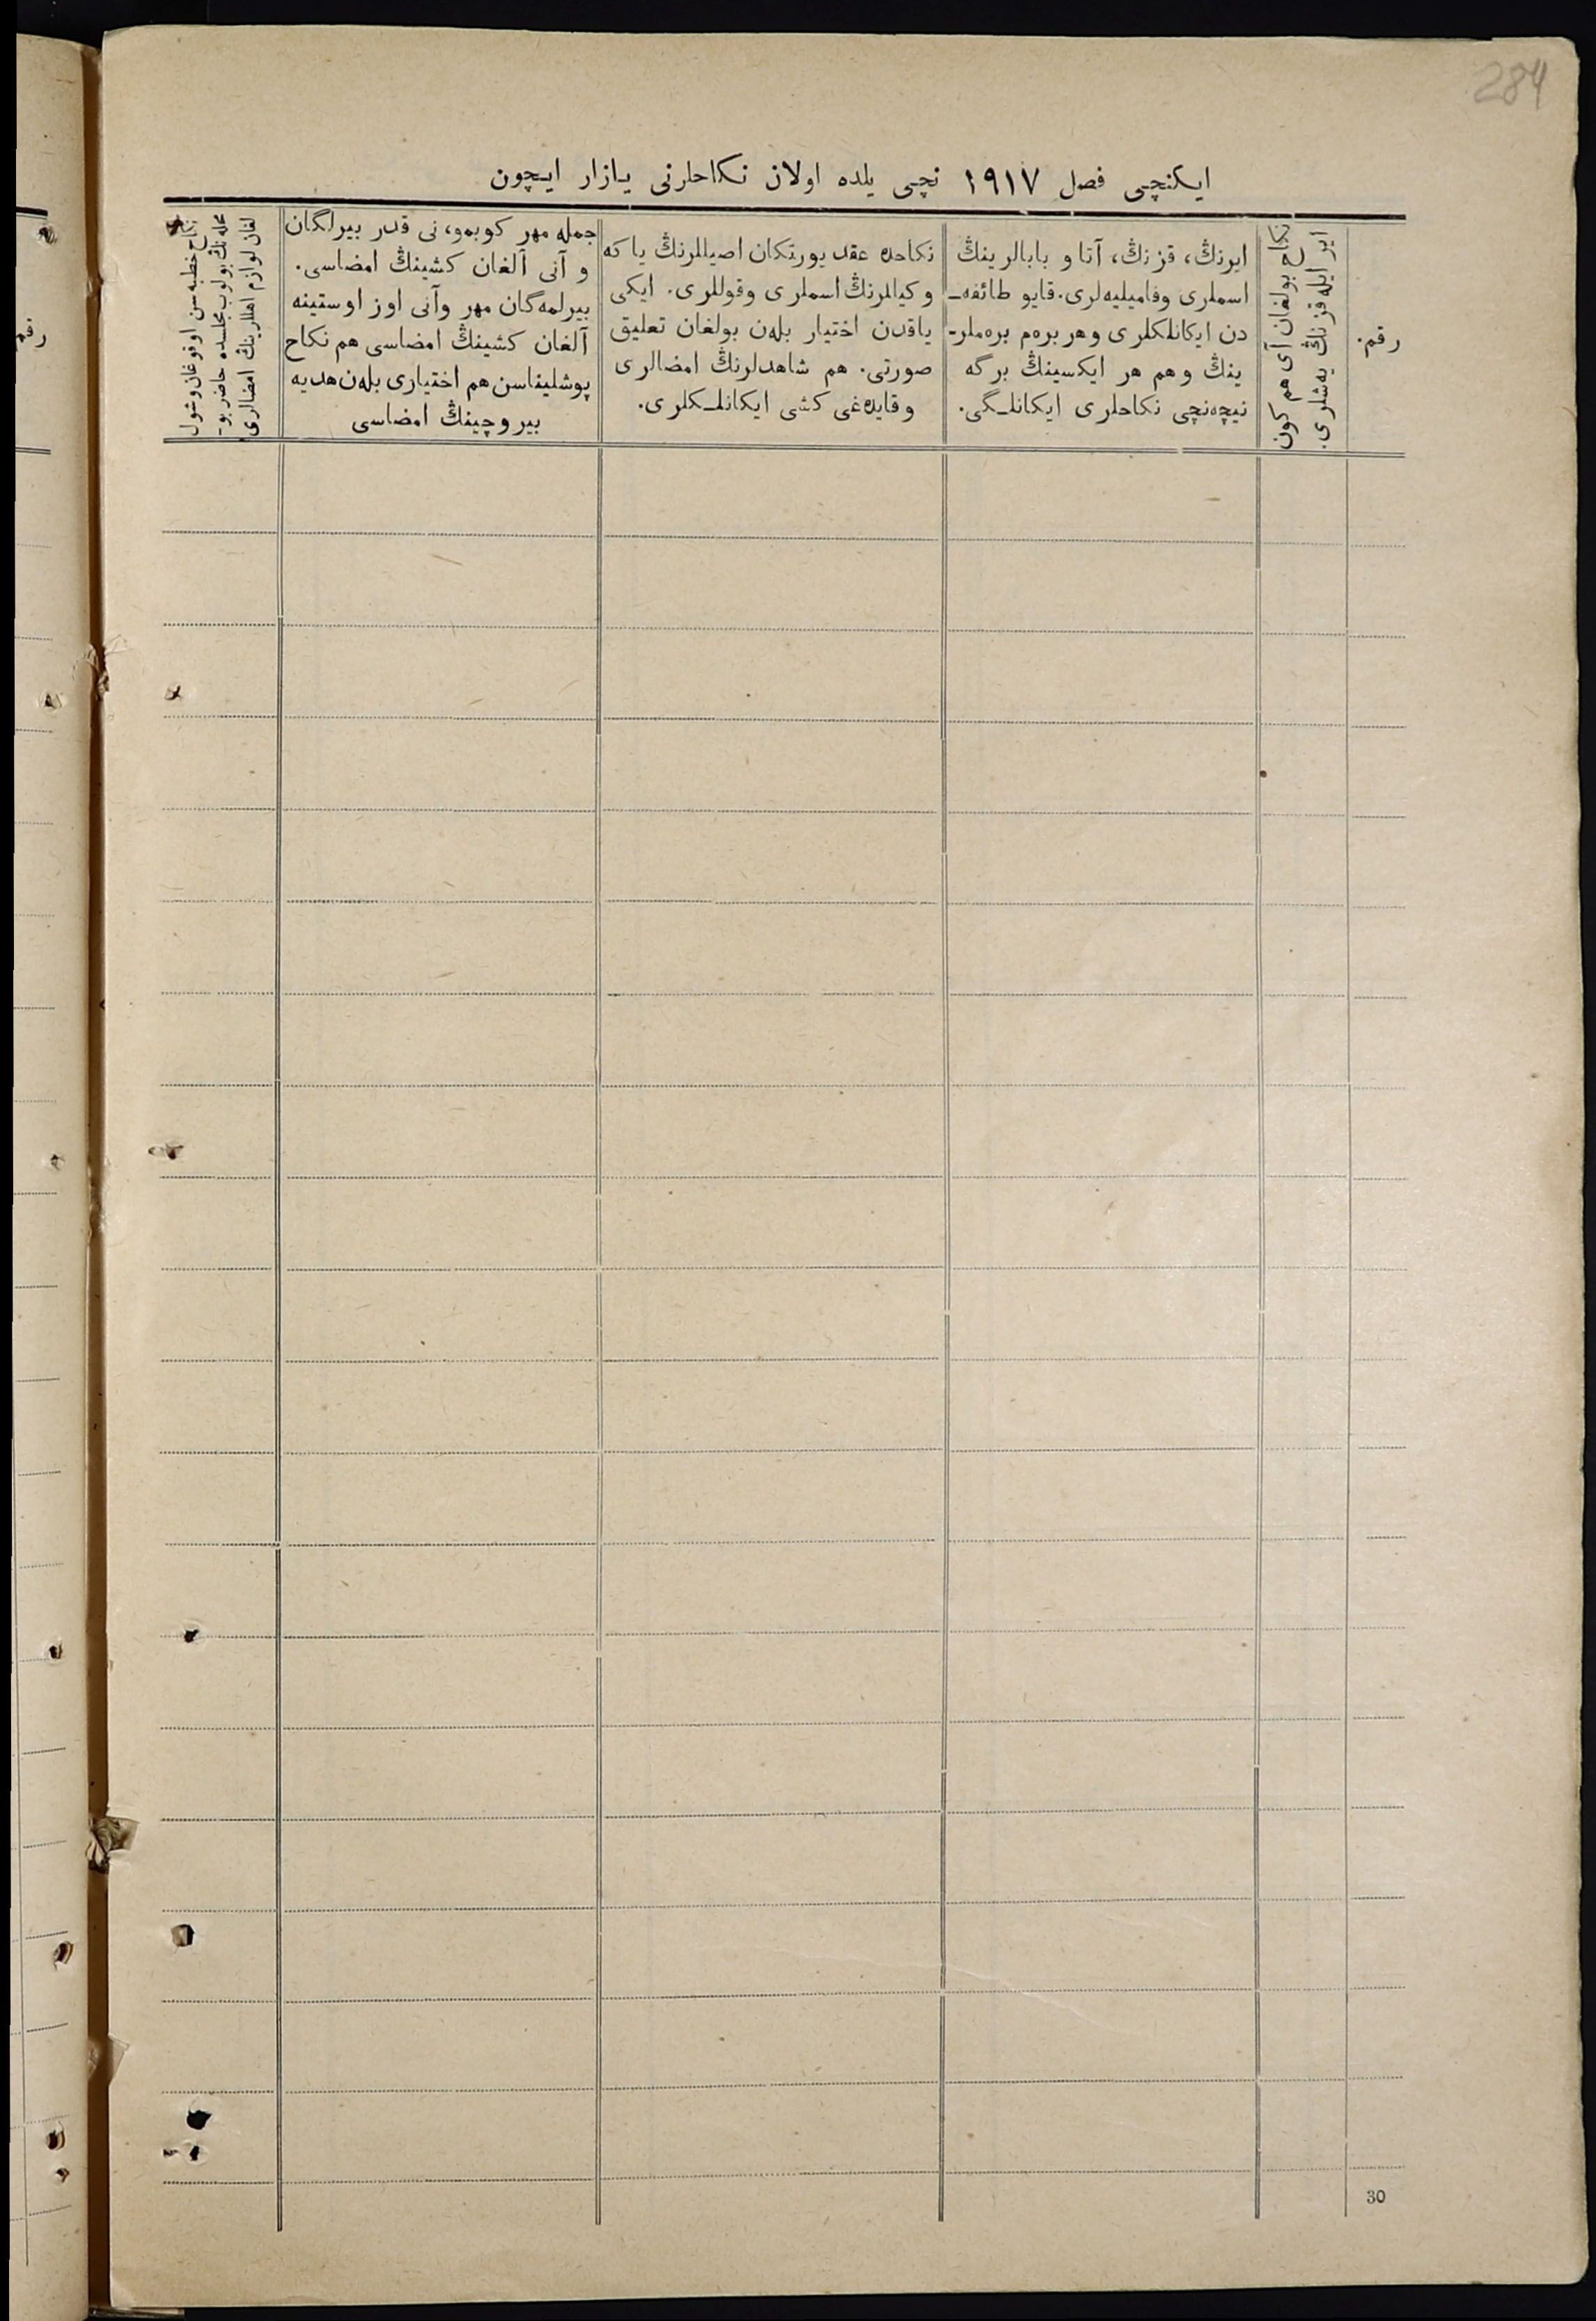 284
ایكنچی فصل ۱۹۱۷ نچی یلده اولان نكاحلرنی یازار ایچون
رقم.
ایر ایله قزنڭ یه‌شلری.
نكاح بولغان آی هم كون
ایرنڭ، قزنڭ، آتا و بابالرینڭ
اسملری وفامیلیه‌لری. قایو طائفه‌ـ
دن ایكانلكلری وهر بره‌م بره‌ملرـ
ینڭ وهم هر ایكسینڭ برگه
نیچه‌نچی نكاحلری ایكانلـگی.
نكاحده عقد یورتكان اصیللرنڭ یا كه
وكیللرنڭ اسملری وقوللری. ایكی
یاقدن اختیار بله‌ن بولغان تعلیق
صورتی. هم شاهدلرنڭ امضالری
وقایده‌غی كشی ایكانلـكلری.
جمله مهر كوبمو، نی قدر بیرلگان
و آنی آلغان كشینڭ امضاسی.
بیرلمه‌گان مهر وآنی اوز اوستینه
آلغان كشینڭ امضاسی هم نكاح
پوشلیناسن هم اختیاری بله‌ن هدیه
بیروچینڭ امضاسی
نكاح خطبه‌سن اوقوغان وشول
محله‌نڭ بولوب مجلسده حاضر بوـ
لغان لوازم اهللرینڭ امضالری
رقم
30